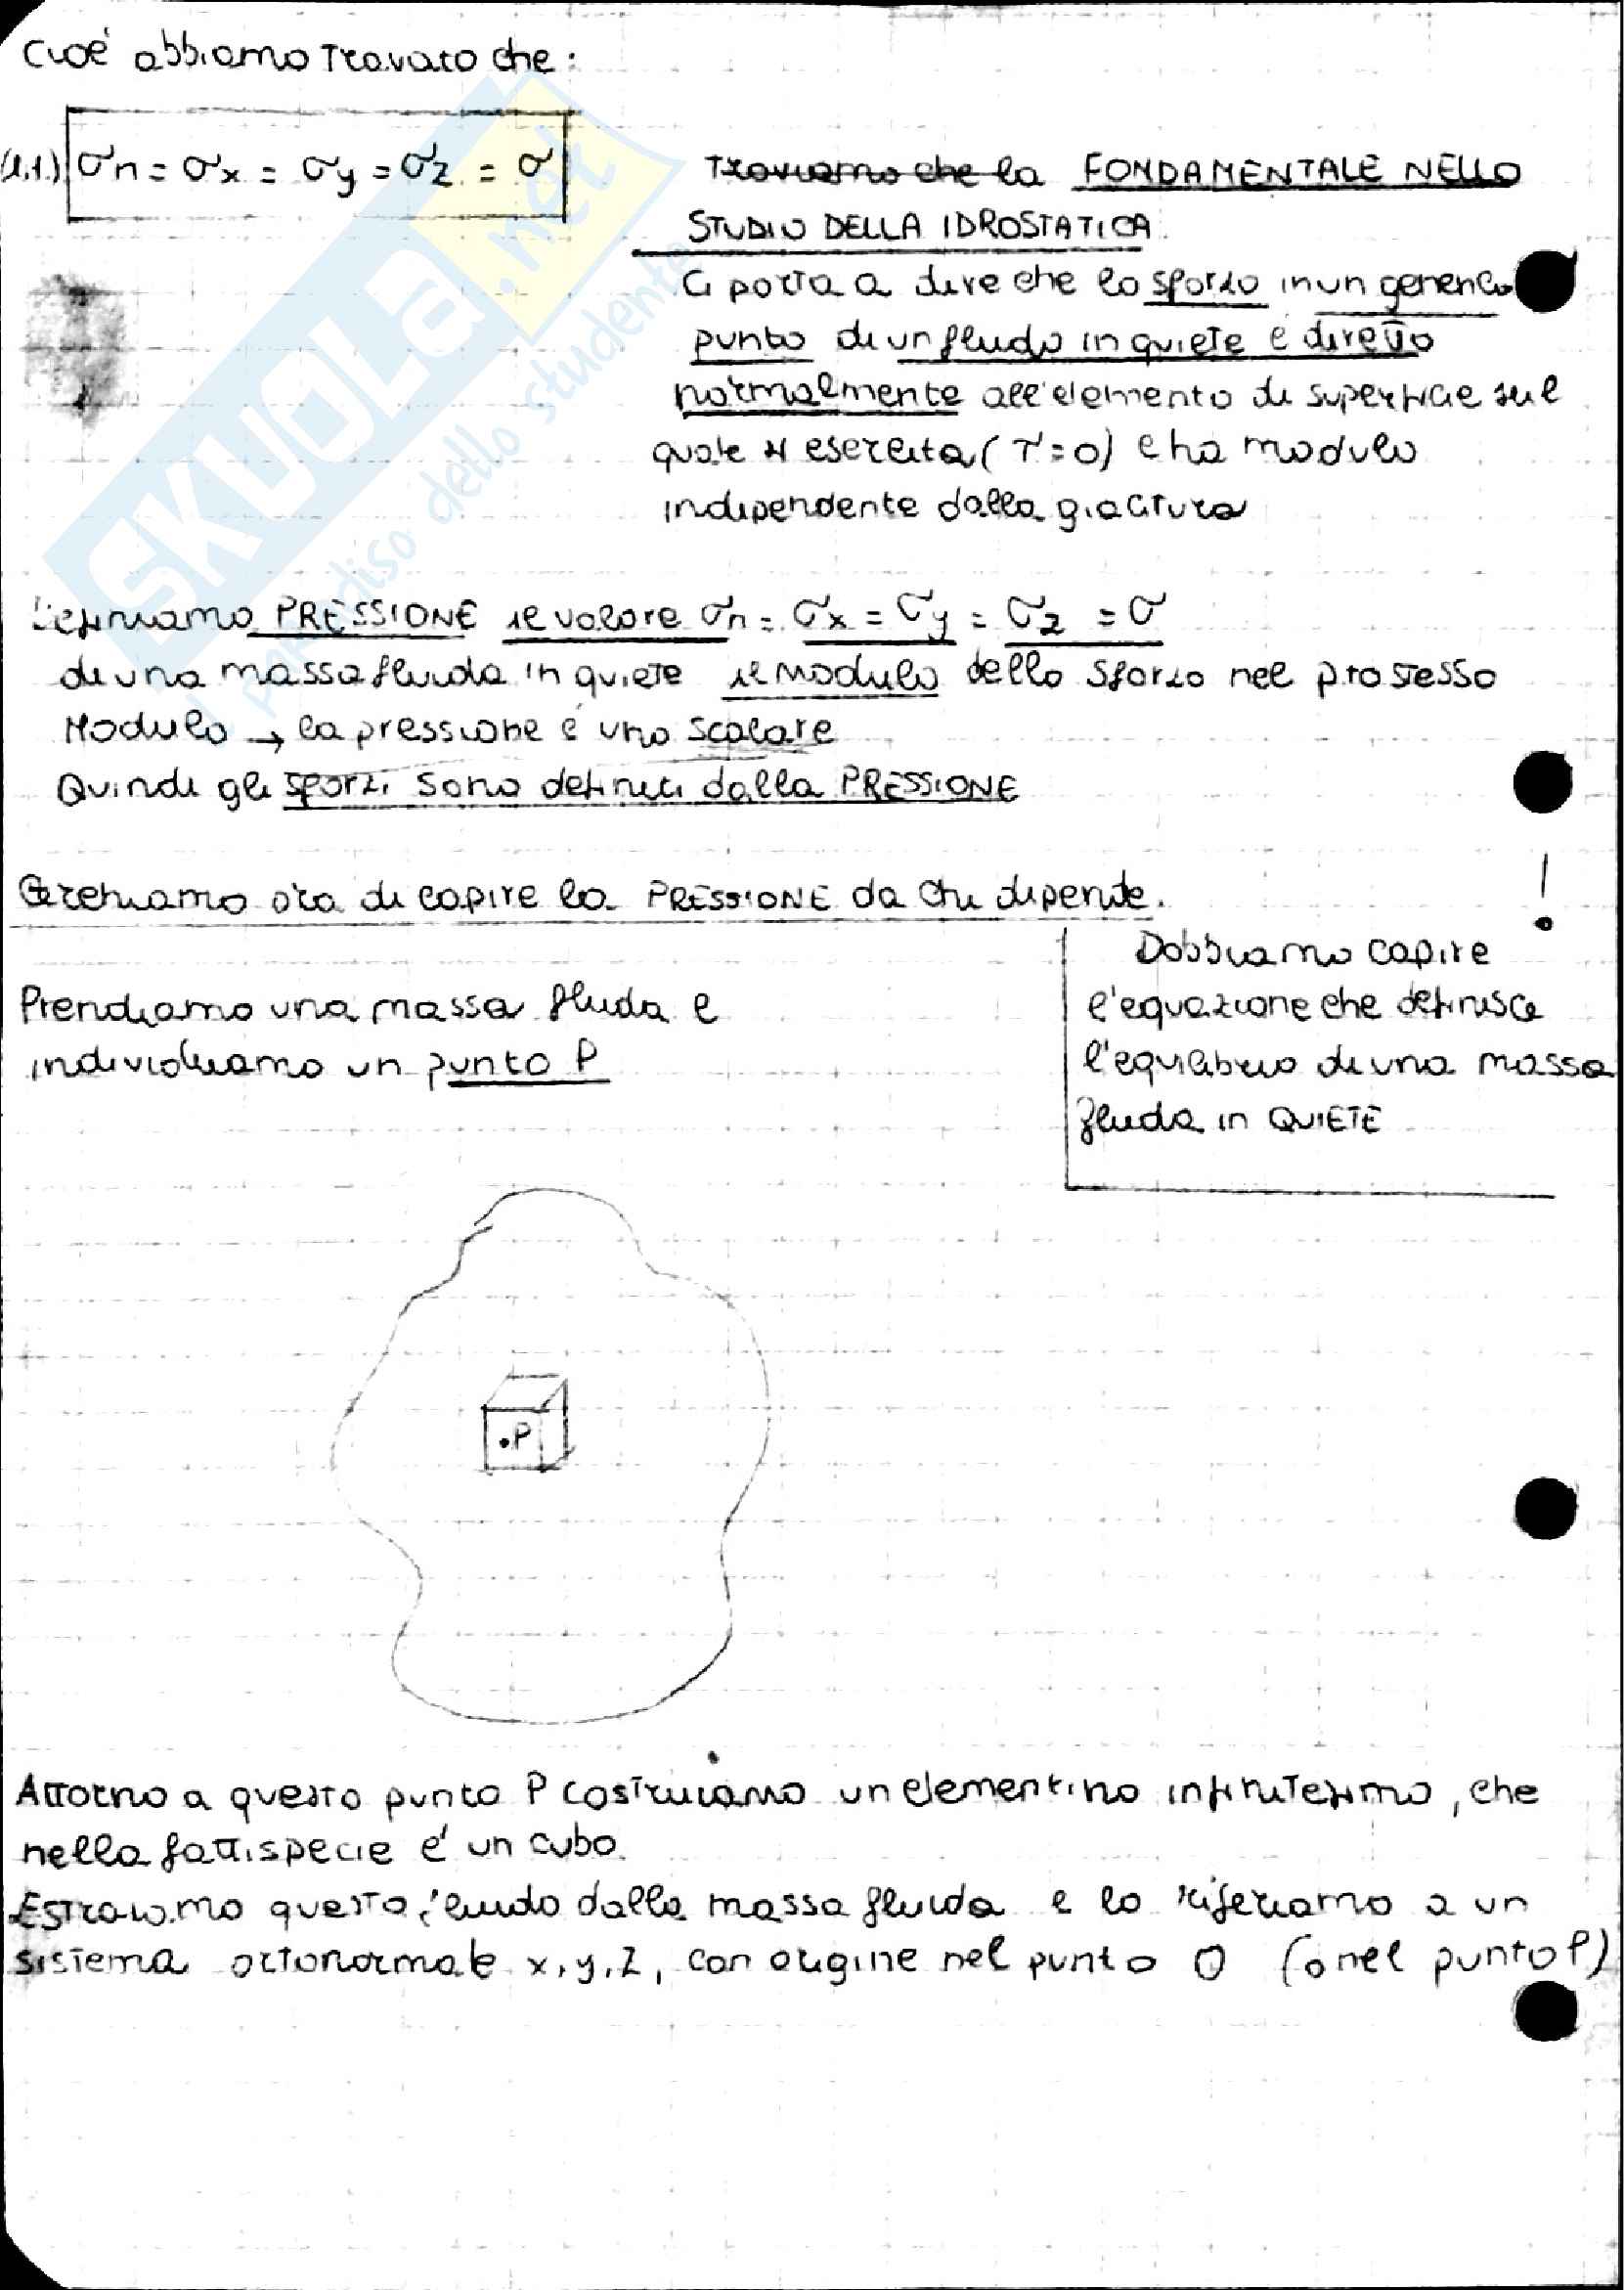 Cioè abbiamo trovato che:
(1.1) σn = σx = σy = σz = σ
Troviamo che la FONDAMENTALE NELLO
STUDIO DELLA IDROSTATICA
Ci porta a dire che lo sforzo in un generico
punto di un fluido in quiete è diretto
normalmente all'elemento di superficie sul
quale si esercita (τ=0) e ha modulo
indipendente dalla giacitura
Definiamo PRESSIONE il valore σn = σx = σy = σz = σ
di una massa fluida in quiete il modulo dello sforzo nel pto stesso
Modulo → la pressione è uno scalare
Quindi gli sforzi sono definiti dalla PRESSIONE
Cerchiamo ora di capire la PRESSIONE da chi dipende.
!
Dobbiamo capire
l'equazione che definisce
l'equilibrio di una massa
fluida in QUIETE
Prendiamo una massa fluida e
individuiamo un punto P
.P
Attorno a questo punto P costruiamo un elementino infinitesimo, che
nella fattispecie è un cubo.
Estraiamo questo fluido dalla massa fluida e lo riferiamo a un
sistema ortonormale x, y, z, con origine nel punto O (o nel punto P)
SKUOLA.net
il paradiso dello studente